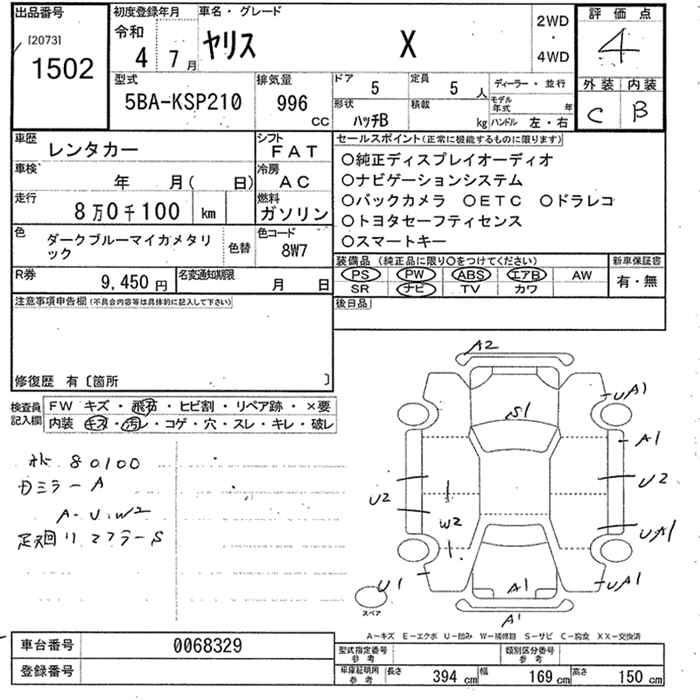 出品番号
[2073]
1502
初度登録年月
令和 4 年 7 月
車名・グレード
ヤリス X
2WD
・
4WD
評価点
4
外装 内装
C B
型式
5BA-KSP210
排気量
996 cc
ドア 5
定員 5 人
形状 ハッチB
積載 kg
ディーラー・並行
モデル年式 年
ハンドル 左・右
車歴 レンタカー
シフト FAT
車検 年 月( 日)
冷房 AC
走行 8万0千100 km
燃料 ガソリン
色 ダークブルーマイカメタリック
色替
色コード 8W7
R券 9,450円
名変通知期限 月 日
セールスポイント(正常に機能するものに限ります)
○純正ディスプレイオーディオ
○ナビゲーションシステム
○バックカメラ ○ETC ○ドラレコ
○トヨタセーフティセンス
○スマートキー
装備品 (純正品に限り○をつけてください)
PS PW ABS エアB AW
SR ナビ TV カワ
新車保証書
有・無
後日品
注意事項申告欄(不具合内容等は具体的に記入して下さい)
修復歴 有〔箇所 〕
検査員記入欄
FW キズ・飛石・ヒビ割・リペア跡・×要
内装 キズ・汚レ・コゲ・穴・スレ・キレ・破レ
80100
ガミラーA
A-U.W2
A2
S1
UA1
A1
U2
U2
W2
UA1
U1
A1
UA1
A1
スペア
A-キズ E-エクボ U-凹み W-補修跡 S-サビ C-腐食 XX-交換済
車台番号 0068329
登録番号
型式指定番号 参考
類別区分番号 参考
車庫証明用 参考
長さ 394 cm 幅 169 cm 高さ 150 cm